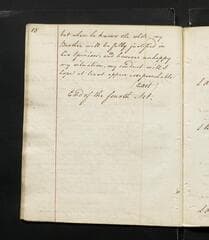 18
but when he knows the whole, my
Brother will be fully justified in
his Opinion, and however unhappy
my situation, my conduct will I
hope at least appear irreproachable
Exit
End of the fourth Act.